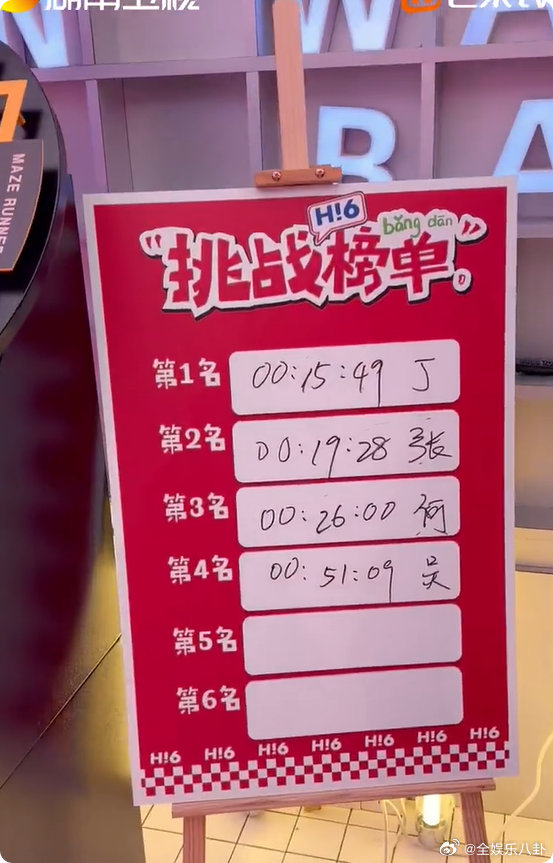 湖南卫视
W
MAZE RUNNER
B A
H!6
bǎng dān
“挑战榜单。”
第1名 00:15:49 丁
第2名 00:19:28 张
第3名 00:26:00 何
第4名 00:51:09 吴
第5名
第6名
H!6 H!6 H!6 H!6 H!6 H!6 H!6
@全娱乐八卦